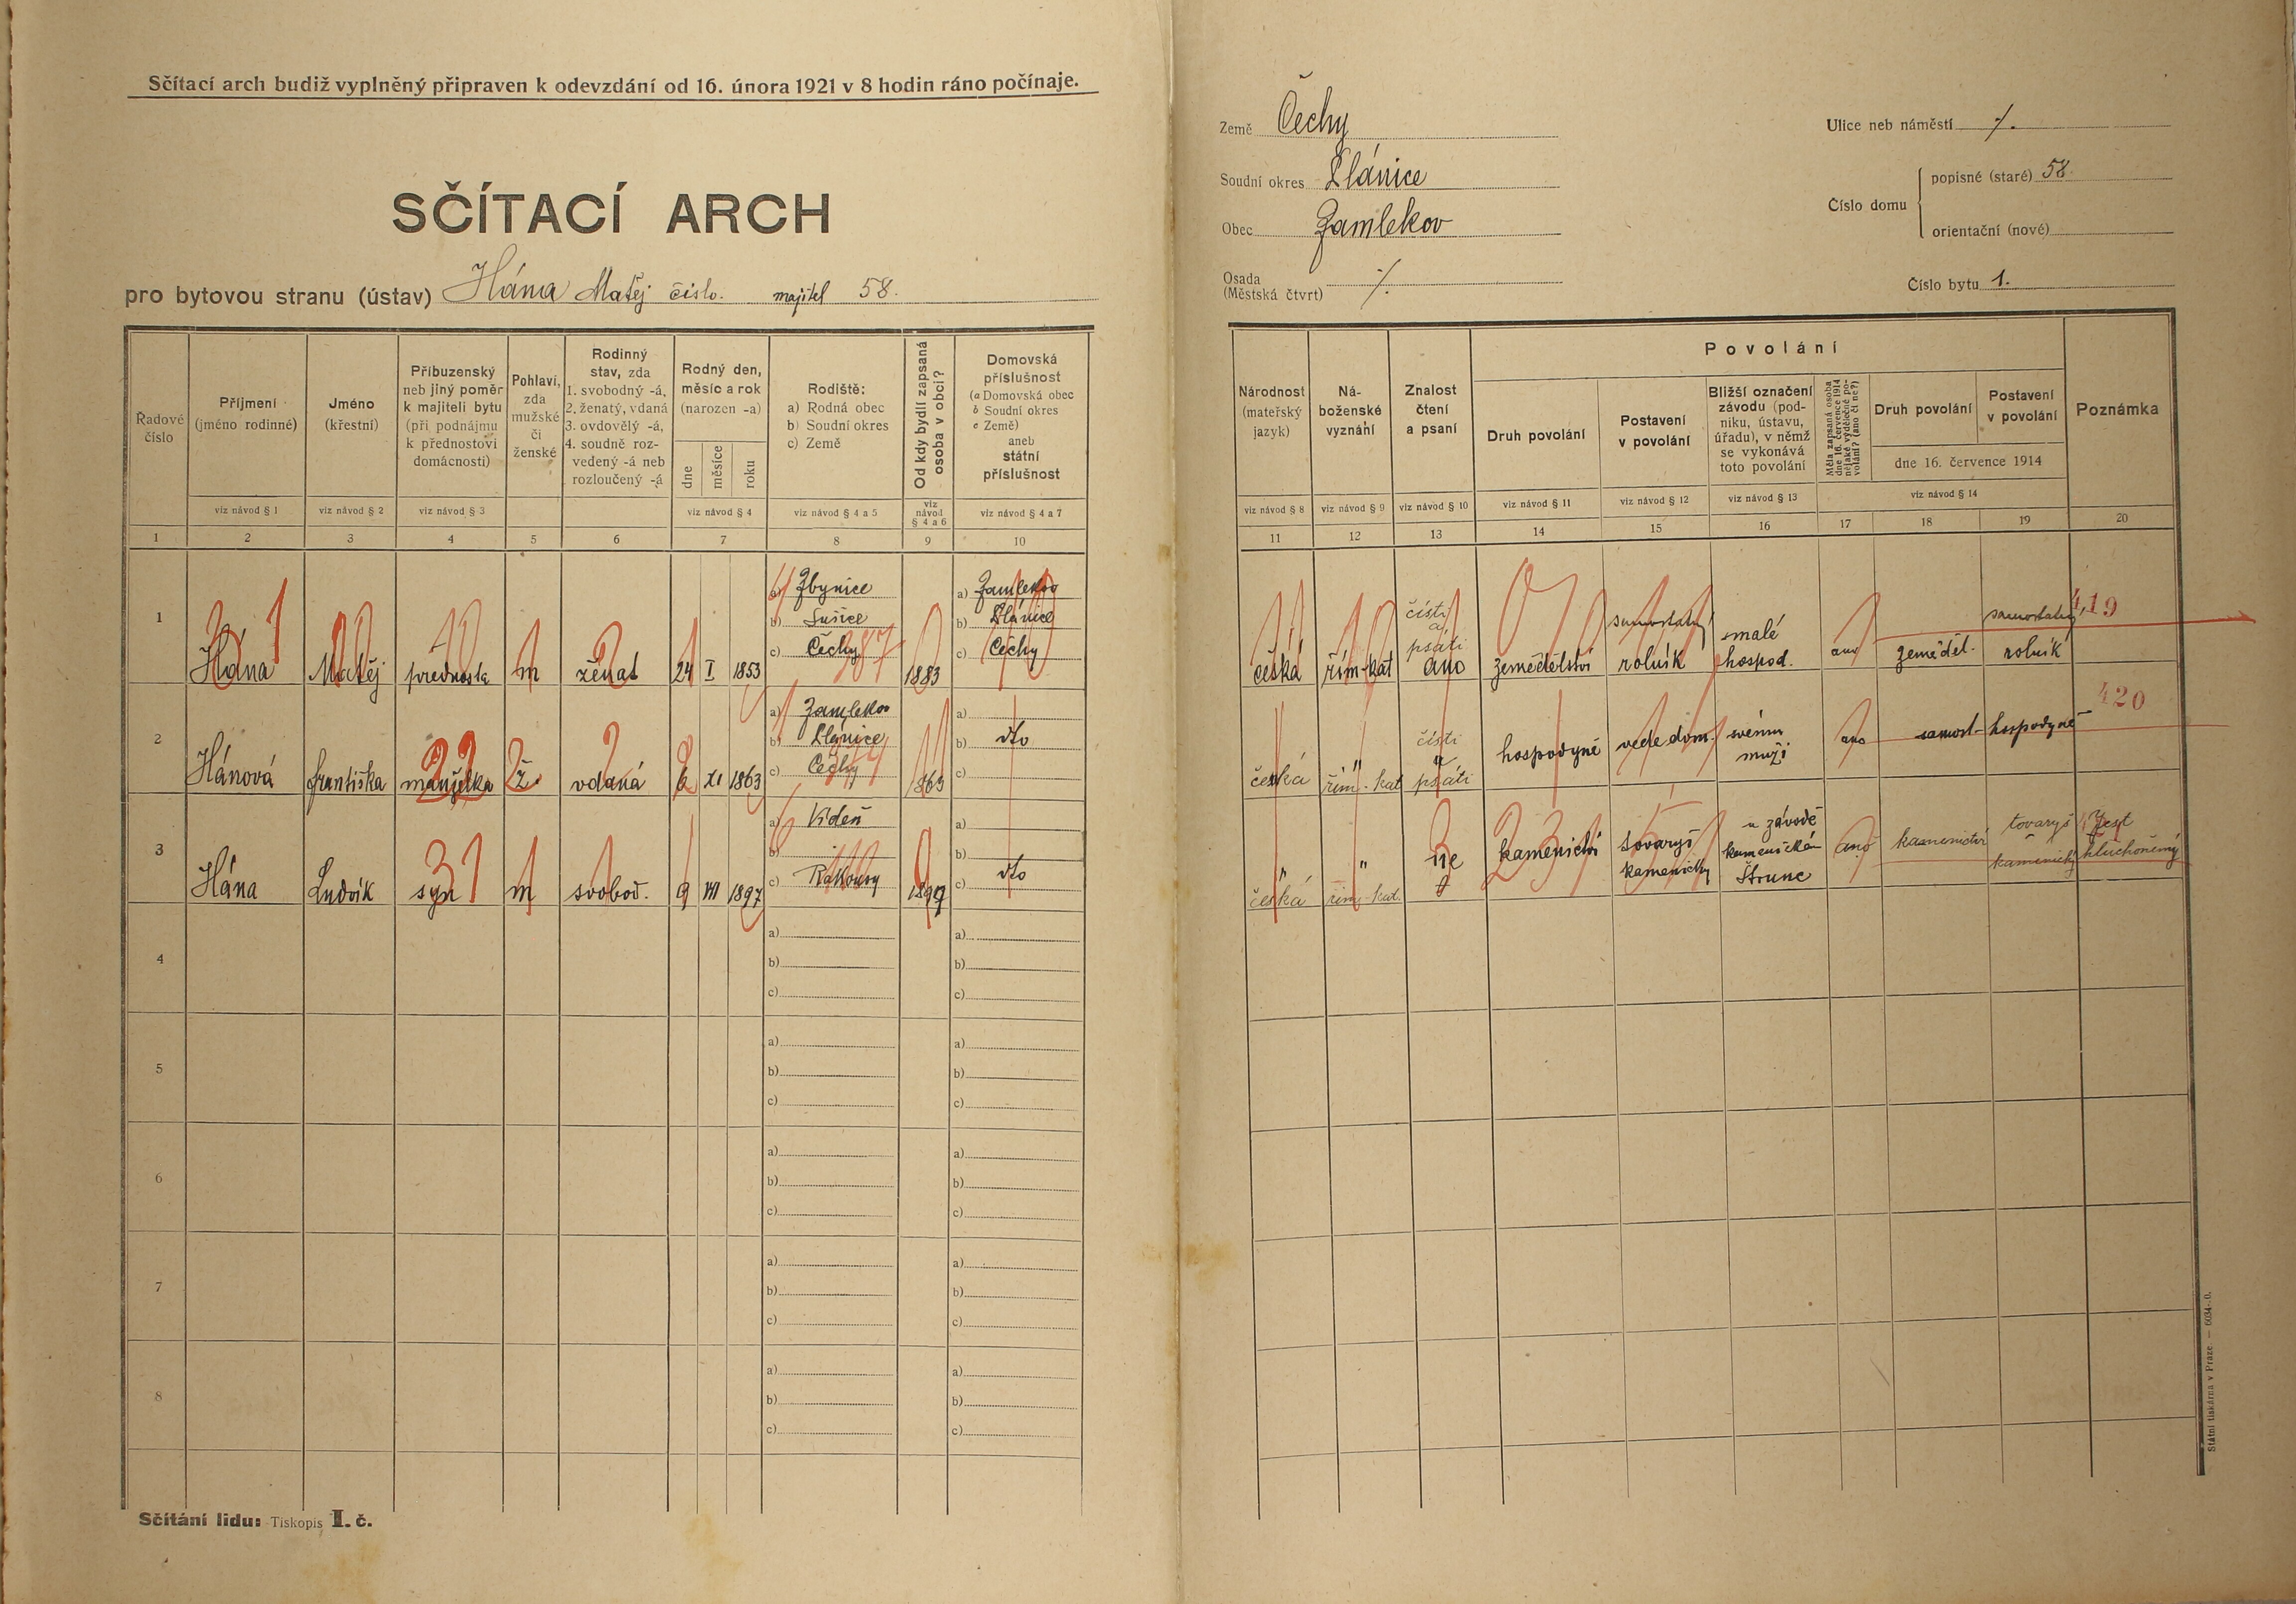 Sčítací arch budiž vyplněný připraven k odevzdání od 16. února 1921 v 8 hodin ráno počínaje.
SČÍTACÍ ARCH
pro bytovou stranu (ústav) Hána Matěj číslo. majitel 58.
Řadové číslo
Příjmení (jméno rodinné)
Jméno (křestní)
Příbuzenský neb jiný poměr k majiteli bytu (při podnájmu k přednostovi domácnosti)
Pohlaví, zda mužské či ženské
Rodinný stav, zda 1. svobodný -á, 2. ženatý, vdaná 3. ovdovělý -á, 4. soudně rozvedený -á neb rozloučený -á
Rodný den, měsíc a rok (narozen -a)
dne měsíce roku
Rodiště: a) Rodná obec b) Soudní okres c) Země
Od kdy bydlí zapsaná osoba v obci?
Domovská příslušnost (a Domovská obec b Soudní okres c Země) aneb státní příslušnost
viz návod § 1 viz návod § 2 viz návod § 3 viz návod § 4 viz návod § 4 a 5 viz návod § 4 a 6 viz návod § 4 a 7
1 2 3 4 5 6 7 8 9 10
1 Hána Matěj přednosta m ženat 24 I 1853 a) Zbynice b) Sušice c) Čechy 1883 a) Zamlekov b) Plánice c) Čechy
2 Hánová Františka manželka ž. vdaná 6 XI 1863 a) Zamlekov b) Plánice c) Čechy 1863 a) b) dto c)
3 Hána Ludvík syn m svobod. 9 VII 1897 a) Vídeň b) c) Rakousy 1899 a) b) c) dto
4 a) b) c) a) b) c)
5 a) b) c) a) b) c)
6 a) b) c) a) b) c)
7 a) b) c) a) b) c)
8 a) b) c) a) b) c)
Sčítání lidu: Tiskopis I. č.
Země Čechy
Soudní okres Plánice
Obec Zamlekov
Osada (Městská čtvrt) ·/.
Ulice neb náměstí ·/.
Číslo domu
popisné (staré) 58.
orientační (nové)
Číslo bytu 1.
Národnost (mateřský jazyk)
Náboženské vyznání
Znalost čtení a psaní
Povolání
Druh povolání
Postavení v povolání
Bližší označení závodu (podniku, ústavu, úřadu), v němž se vykonává toto povolání
Měla zapsaná osoba dne 16. července 1914 nějaké výdělečné povolání? (ano či ne?)
Druh povolání
Postavení v povolání
dne 16. července 1914
Poznámka
viz návod § 8 viz návod § 9 viz návod § 10 viz návod § 11 viz návod § 12 viz návod § 13 viz návod § 14
11 12 13 14 15 16 17 18 19 20
česká řím-kat čísti a psáti ano zemědělství samostatný rolník malé hospod. ano zeměděl. samostatný rolník 419
česká řím. kat čísti a psáti hospodyně vede dom. svému muži ano samost. hospodyně 420
" česká " řím-kat. ne kamenictví tovaryš kamenický u závodě kamenickém Štrunc ano kamenictví tovaryš kamenický Jest hluchoněmý
Státní tiskárna v Praze. — 6034-0.